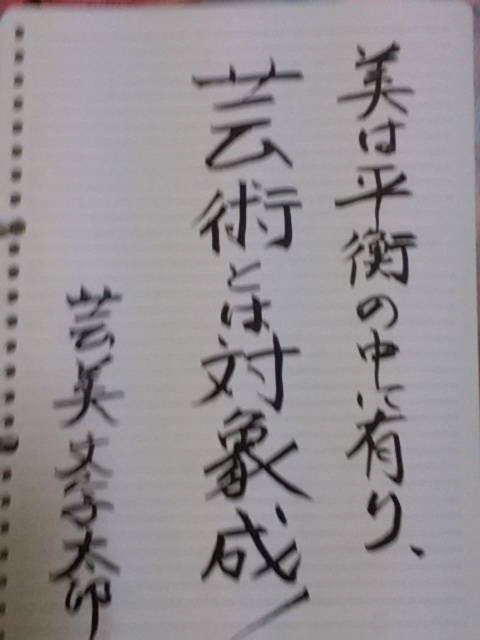 美は平衡の中に有り、
芸術とは対象成!
芸美文学太印